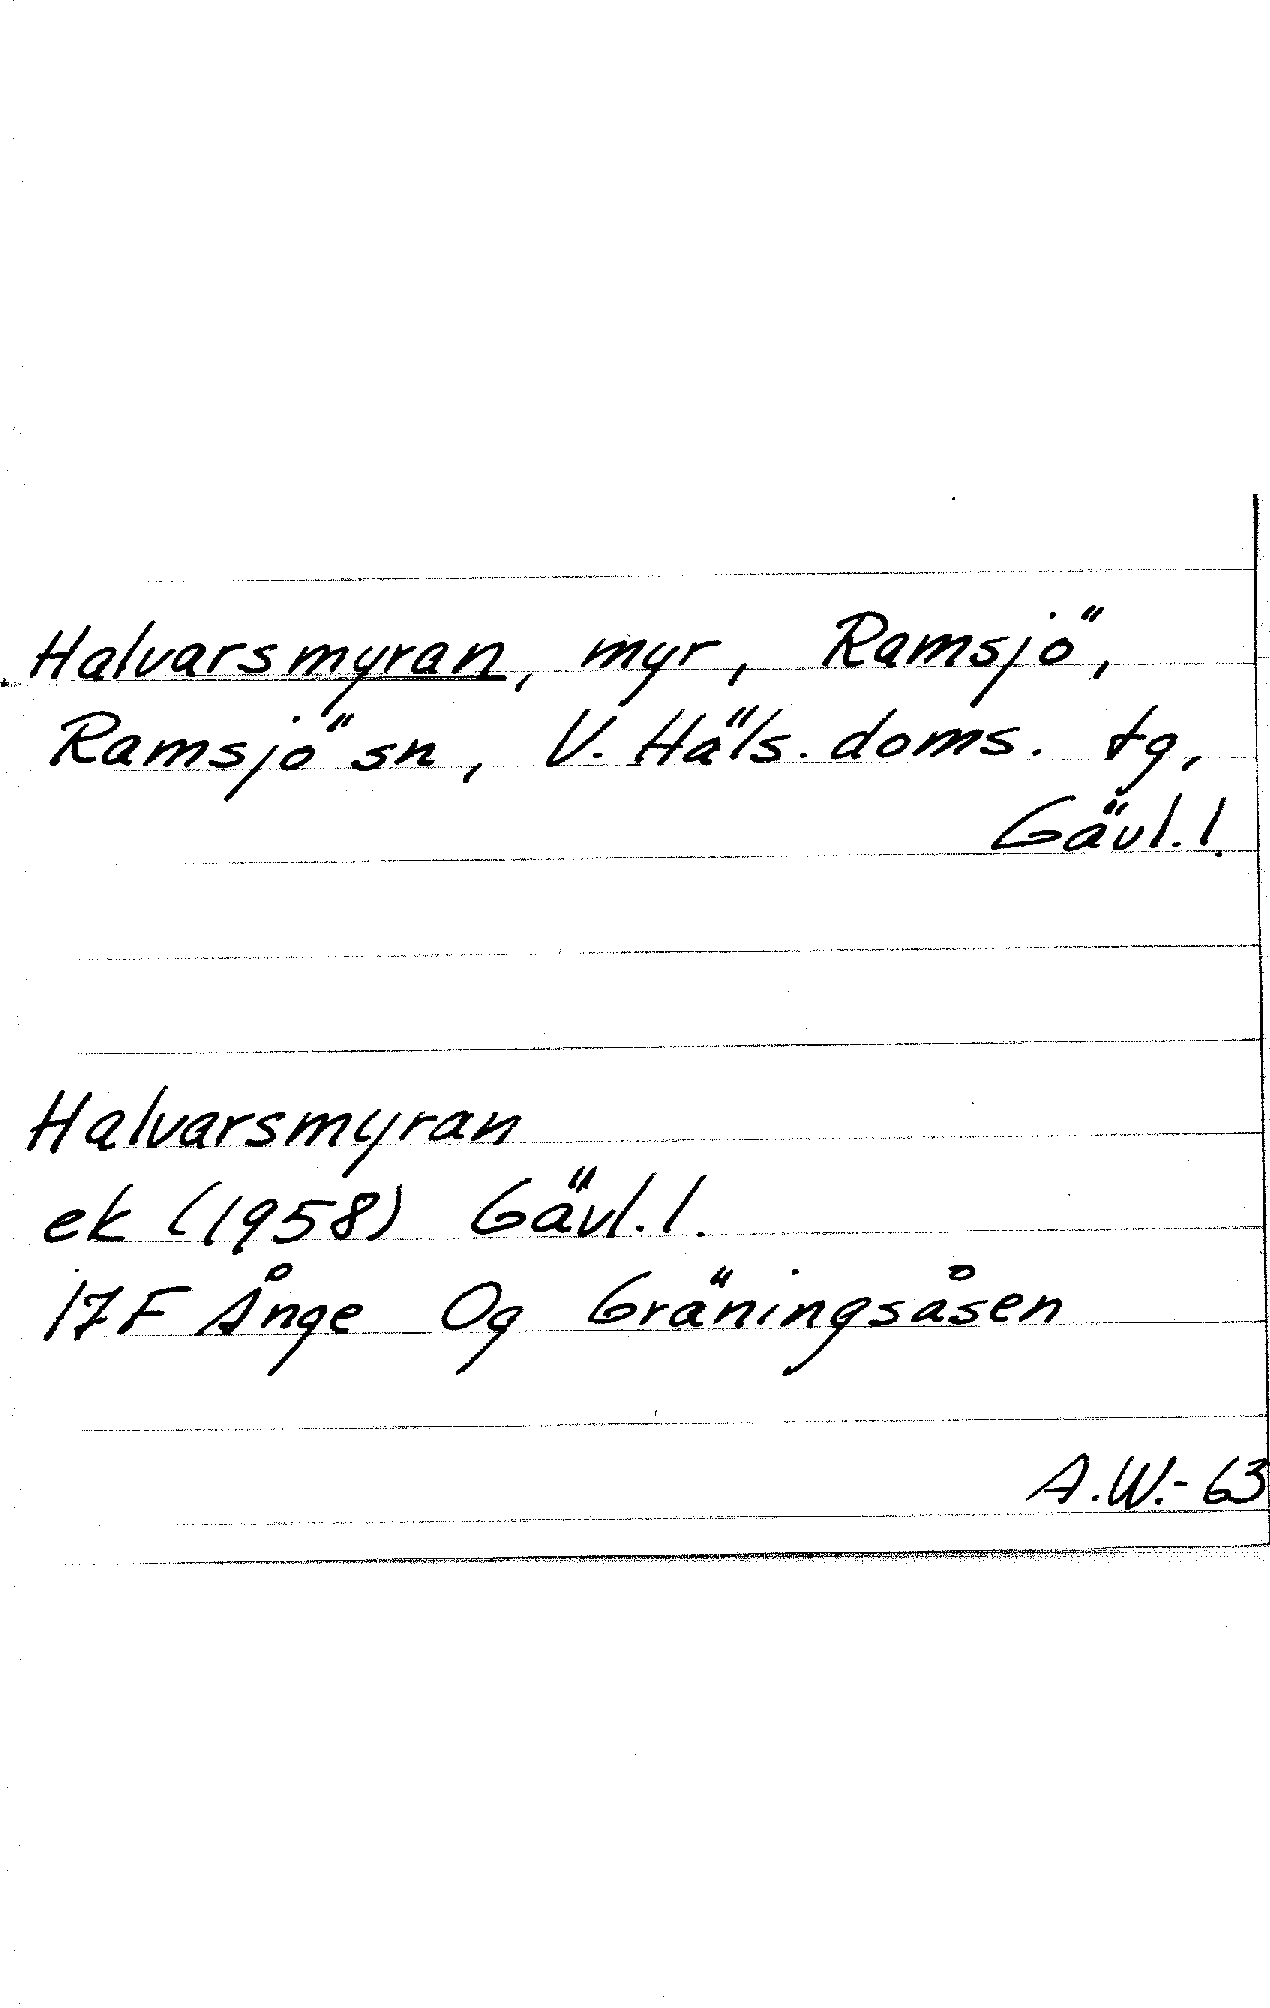 Halvarsmyran, myr, Ramsjö,
Ramsjö sn, V. Häls. doms. tg,
Gävl. l.
Halvarsmyran
ek (1958) Gävl. l.
17F Ånge Og Gräningsåsen
A.W.-63